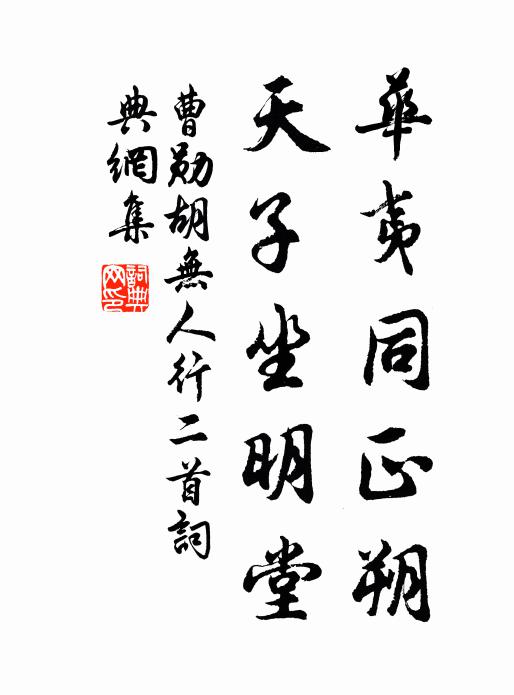 華夷同正朔
天子坐明堂
曹勛胡無人行二首詞
典網集
詞典
网印